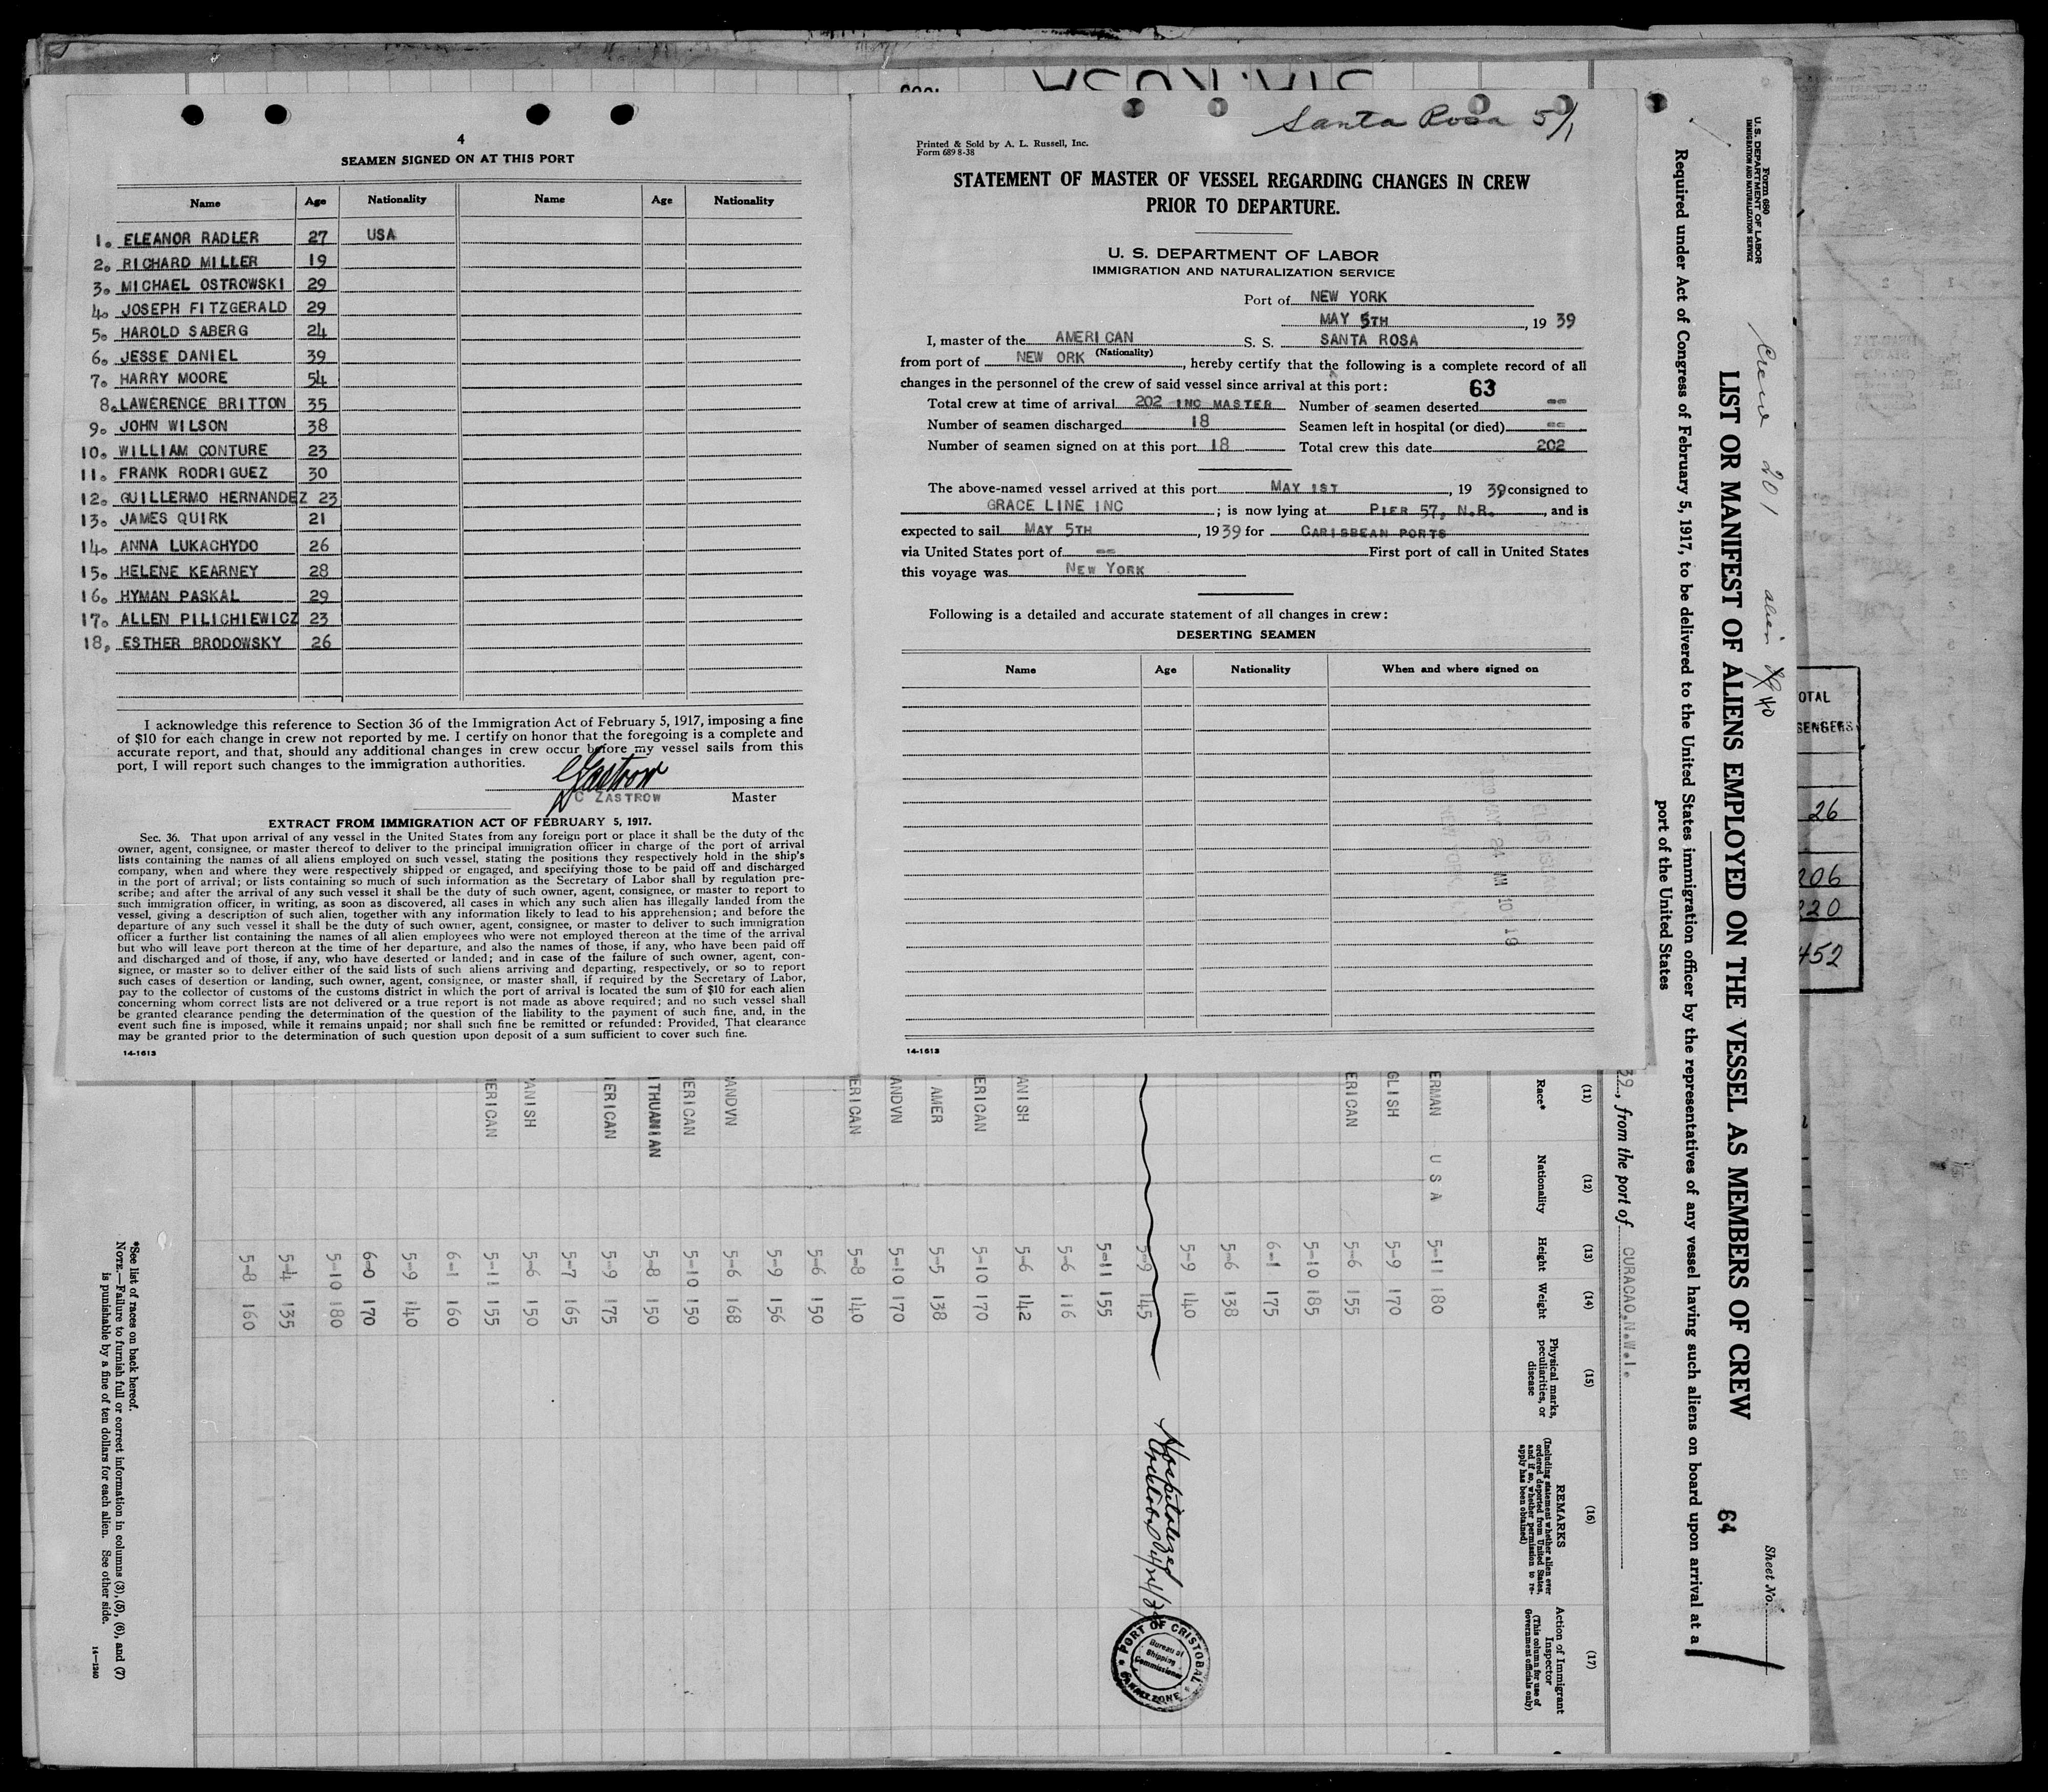 4
SEAMEN SIGNED ON AT THIS PORT
Name Age Nationality Name Age Nationality
1. ELEANOR RADLER 27 USA
2. RICHARD MILLER 19
3. MICHAEL OSTROWSKI 29
4. JOSEPH FITZGERALD 29
5. HAROLD SABERG 24
6. JESSE DANIEL 39
7. HARRY MOORE 54
8. LAWERENCE BRITTON 35
9. JOHN WILSON 38
10. WILLIAM CONTURE 23
11. FRANK RODRIGUEZ 30
12. GUILLERMO HERNANDEZ 23
13. JAMES QUIRK 21
14. ANNA LUKACHYDO 26
15. HELENE KEARNEY 28
16. HYMAN PASKAL 29
17. ALLEN PILICHIEWICZ 23
18, ESTHER BRODOWSKY 26
I acknowledge this reference to Section 36 of the Immigration Act of February 5, 1917, imposing a fine
of $10 for each change in crew not reported by me. I certify on honor that the foregoing is a complete and
accurate report, and that, should any additional changes in crew occur before my vessel sails from this
port, I will report such changes to the immigration authorities.
C ZASTROW Master
EXTRACT FROM IMMIGRATION ACT OF FEBRUARY 5, 1917.
Sec. 36. That upon arrival of any vessel in the United States from any foreign port or place it shall be the duty of the
owner, agent, consignee, or master thereof to deliver to the principal immigration officer in charge of the port of arrival
lists containing the names of all aliens employed on such vessel, stating the positions they respectively hold in the ship's
company, when and where they were respectively shipped or engaged, and specifying those to be paid off and discharged
in the port of arrival; or lists containing so much of such information as the Secretary of Labor shall by regulation pre-
scribe; and after the arrival of any such vessel it shall be the duty of such owner, agent, consignee, or master to report to
such immigration officer, in writing, as soon as discovered, all cases in which any such alien has illegally landed from the
vessel, giving a description of such alien, together with any information likely to lead to his apprehension; and before the
departure of any such vessel it shall be the duty of such owner, agent, consignee, or master to deliver to such immigration
officer a further list containing the names of all alien employees who were not employed thereon at the time of the arrival
but who will leave port thereon at the time of her departure, and also the names of those, if any, who have been paid off
and discharged and of those, if any, who have deserted or landed; and in case of the failure of such owner, agent, con-
signee, or master so to deliver either of the said lists of such aliens arriving and departing, respectively, or so to report
such cases of desertion or landing, such owner, agent, consignee, or master shall, if required by the Secretary of Labor,
pay to the collector of customs of the customs district in which the port of arrival is located the sum of $10 for each alien
concerning whom correct lists are not delivered or a true report is not made as above required; and no such vessel shall
be granted clearance pending the determination of the question of the liability to the payment of such fine, and, in the
event such fine is imposed, while it remains unpaid; nor shall such fine be remitted or refunded: Provided, That clearance
may be granted prior to the determination of such question upon deposit of a sum sufficient to cover such fine.
14-1613
Santa Rosa 5/1
Printed & Sold by A. L. Russell, Inc.
Form 689 8-38
STATEMENT OF MASTER OF VESSEL REGARDING CHANGES IN CREW
PRIOR TO DEPARTURE.
U. S. DEPARTMENT OF LABOR
IMMIGRATION AND NATURALIZATION SERVICE
Port of NEW YORK
MAY 5TH, 19 39
I, master of the AMERICAN S. S. SANTA ROSA
(Nationality)
from port of NEW ORK, hereby certify that the following is a complete record of all
changes in the personnel of the crew of said vessel since arrival at this port: 63
Total crew at time of arrival 202 INC MASTER Number of seamen deserted --
Number of seamen discharged 18 Seamen left in hospital (or died) --
Number of seamen signed on at this port 18 Total crew this date 202
The above-named vessel arrived at this port MAY 1ST, 19 39 consigned to
GRACE LINE INC; is now lying at PIER 57, N.R., and is
expected to sail MAY 5TH, 1939 for CARIBBEAN PORTS
via United States port of -- First port of call in United States
this voyage was NEW YORK
Following is a detailed and accurate statement of all changes in crew:
DESERTING SEAMEN
Name Age Nationality When and where signed on
14-1613
Form 680
U. S. DEPARTMENT OF LABOR
IMMIGRATION AND NATURALIZATION SERVICE
Crew 201 alien 40
Sheet No.
LIST OR MANIFEST OF ALIENS EMPLOYED ON THE VESSEL AS MEMBERS OF CREW 64
Required under Act of Congress of February 5, 1917, to be delivered to the United States immigration officer by the representatives of any vessel having such aliens on board upon arrival at a
port of the United States
39, from the port of CURACAO,N.W.I.
(11) (12) (13) (14) (15) (16) (17)
Race* Nationality Height Weight Physical marks, peculiarities, or disease
REMARKS
(Including statement whether alien ever ordered deported from United States, and if so, whether permission to re-apply has been obtained)
Action of Immigrant Inspector
(This column for use of Government officials only)
ERMAN U S A 5-11 180
GLISH 5-9 170
ERICAN 5-6 155
5-10 185
6-1 175
5-6 138
5-9 140
5-9 145 Hospitalized Cristobal 4/24/39
5-11 155
5-6 116
ANISH 5-6 142
ERICAN 5-10 170
AMER 5-5 138
ANDVN 5-10 170
ERICAN 5-8 140
5-6 150
5-9 156
ANDVN 5-6 168
MERICAN 5-10 150
ITHUANIAN 5-8 150
ERICAN 5-9 175
5-7 165
ANISH 5-6 150
ERICAN 5-11 155
6-1 160
5-9 140
6-0 170
5-10 180
5-4 135
5-8 160
PORT OF CRISTOBAL
Bureau of
Shipping
Commissioner
CANAL ZONE
*See list of races on back hereof.
NOTE.—Failure to furnish full or correct information in columns (3), (5), (6), and (7)
is punishable by a fine of ten dollars for each alien. See other side.
14-1240
OTAL
SENGERS
26
206
220
452